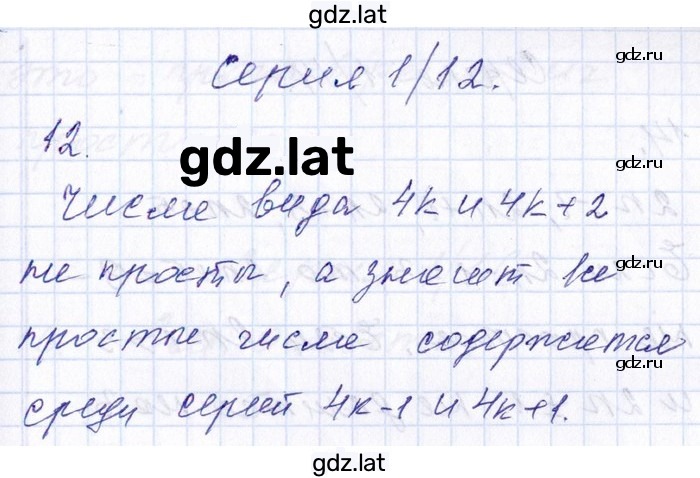 gdz.lat
Серия 1/12.
gdz.ru
12.
gdz.ru
gdz.lat
Числа вида 4k и 4k+2
gdz.ru
не просты, а значит все
gdz.ru
простые числа содержатся
gdz.ru
среди серий 4k-1 и 4k+1.
gdz.ru
gdz.lat